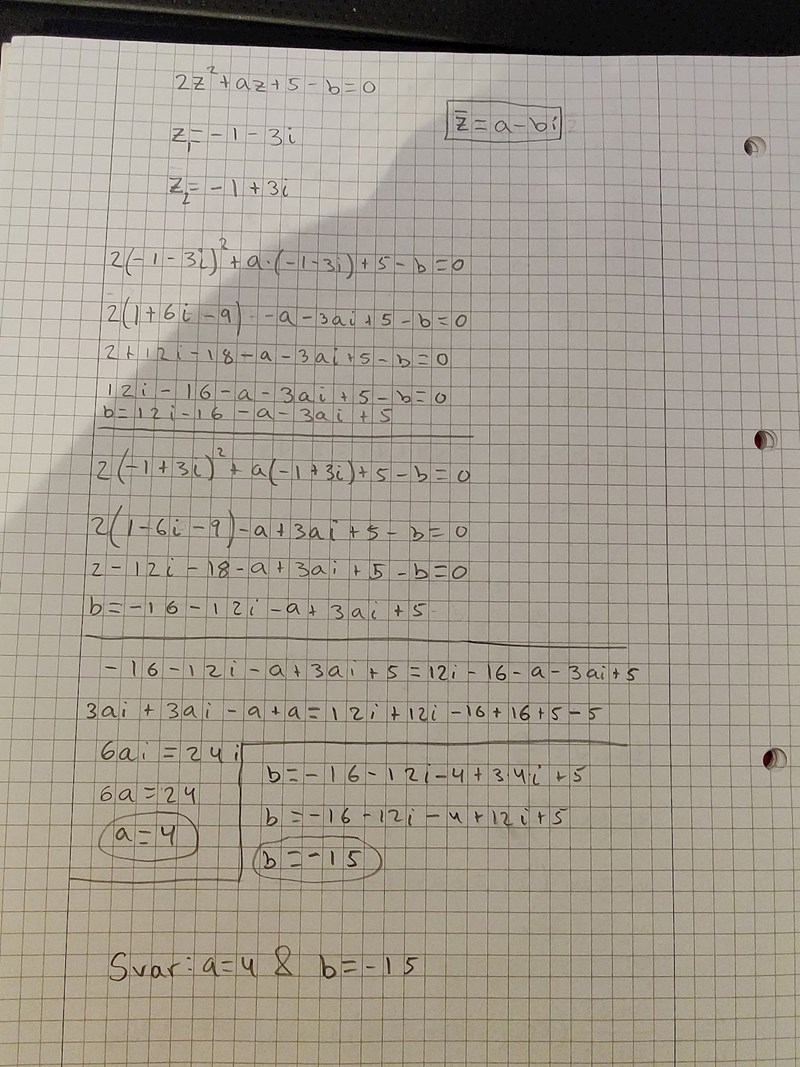 2z²+az+5-b=0
z̄=a-bi
z₁=-1-3i
z₂=-1+3i
2(-1-3i)²+a·(-1-3i)+5-b=0
2(1+6i-9)-a-3ai+5-b=0
2+12i-18-a-3ai+5-b=0
12i-16-a-3ai+5-b=0
b=12i-16-a-3ai+5
2(-1+3i)²+a(-1+3i)+5-b=0
2(1-6i-9)-a+3ai+5-b=0
2-12i-18-a+3ai+5-b=0
b=-16-12i-a+3ai+5
-16-12i-a+3ai+5=12i-16-a-3ai+5
3ai+3ai-a+a=12i+12i-16+16+5-5
6ai=24i
6a=24
a=4
b=-16-12i-4+3·4·i+5
b=-16-12i-4+12i+5
b=-15
Svar: a=4 & b=-15